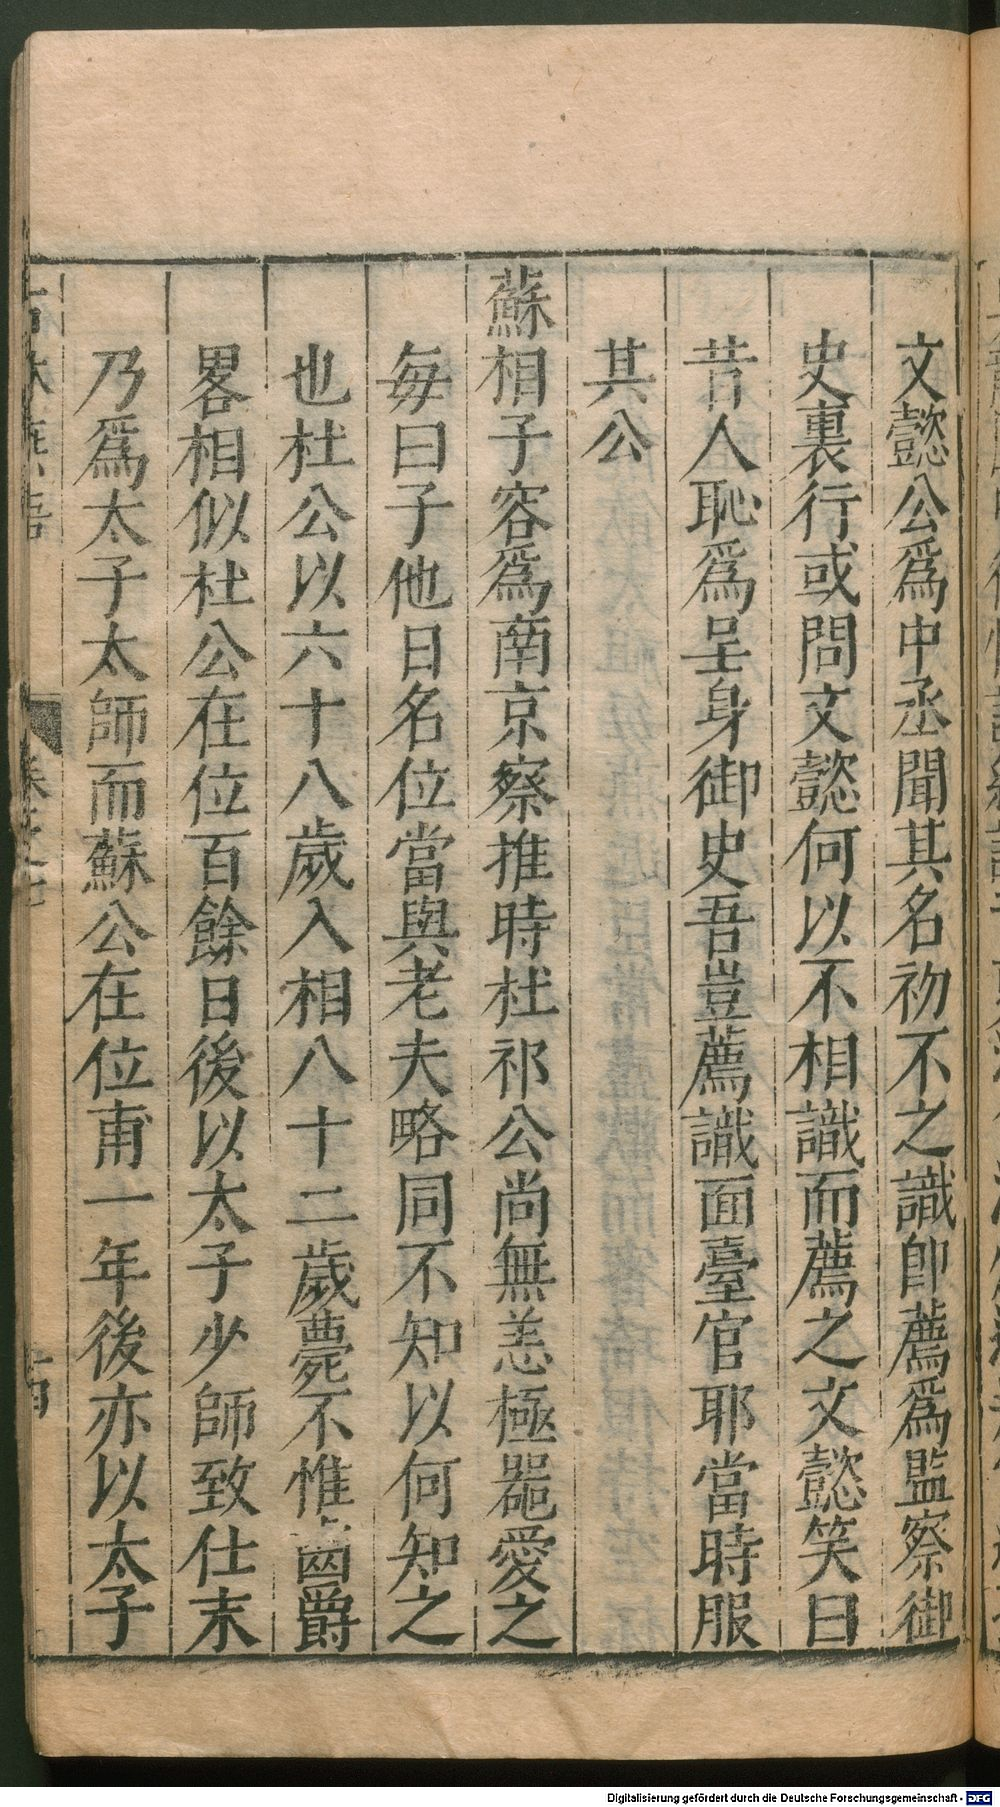 文懿公爲中丞聞其名初不之識卽薦爲監察御
史裏行或問文懿何以不相識而薦之文懿笑曰
昔人恥爲呈身御史吾豈薦識面臺官耶當時服
其公
蘇相子容爲南京察推時杜祁公尚無恙極器愛之
每曰子他日名位當與老夫略同不知以何知之
也杜公以六十八歲入相八十二歲薨不惟齒爵
畧相似杜公在位百餘日後以太子少師致仕末
乃爲太子太師而蘇公在位甫一年後亦以太子
Digitalisierung gefördert durch die Deutsche Forschungsgemeinschaft - DFG